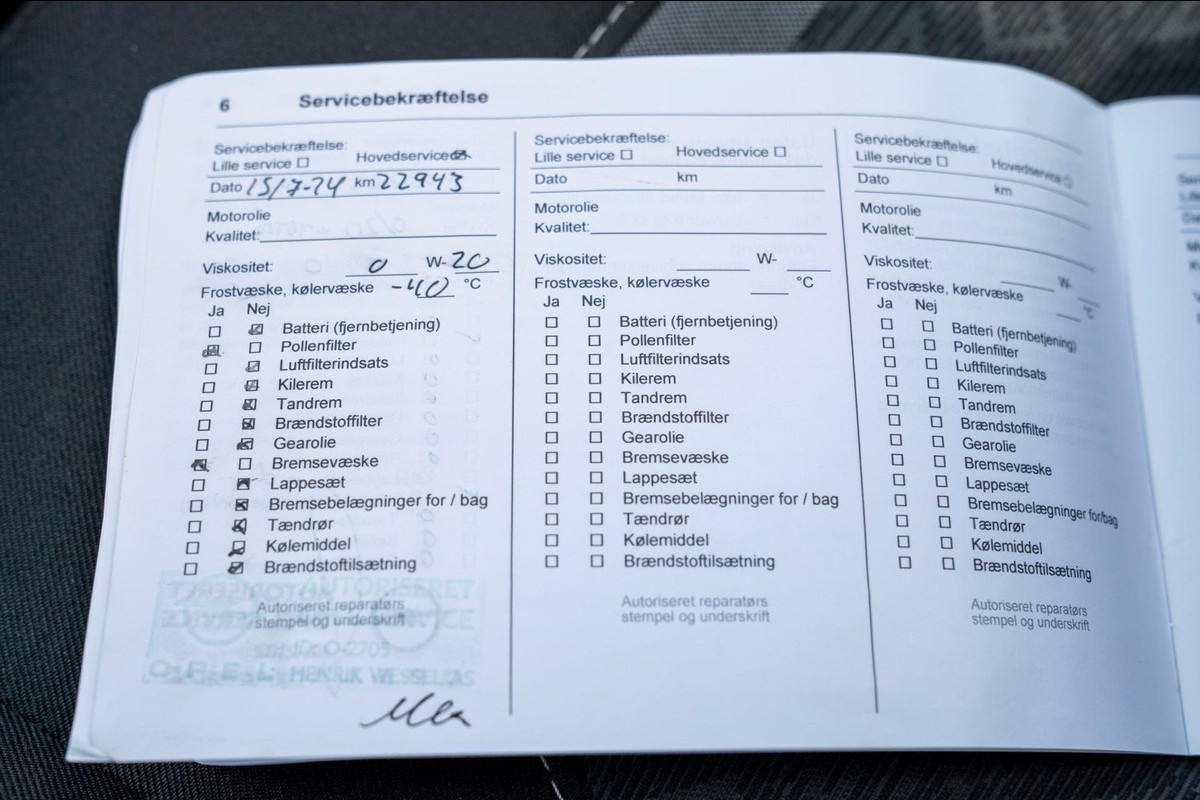 6 Servicebekræftelse
Servicebekræftelse:
Lille service ☐ Hovedservice ☒
Dato 15/7-24 km 22943
Motorolie
Kvalitet:
Viskositet: 0 W-20
Frostvæske, kølervæske -40 °C
Ja Nej
☐ ☒ Batteri (fjernbetjening)
☒ ☐ Pollenfilter
☐ ☒ Luftfilterindsats
☐ ☒ Kilerem
☐ ☒ Tandrem
☐ ☒ Brændstoffilter
☐ ☒ Gearolie
☒ ☐ Bremsevæske
☐ ☒ Lappesæt
☐ ☒ Bremsebelægninger for / bag
☐ ☒ Tændrør
☐ ☒ Kølemiddel
☐ ☒ Brændstoftilsætning
AUTORISERET
Autoriseret reparatørs
stempel og underskrift
O-2705
OPEL HENRIK WESSEL AS
Servicebekræftelse:
Lille service ☐ Hovedservice ☐
Dato km
Motorolie
Kvalitet:
Viskositet: W-
Frostvæske, kølervæske °C
Ja Nej
☐ ☐ Batteri (fjernbetjening)
☐ ☐ Pollenfilter
☐ ☐ Luftfilterindsats
☐ ☐ Kilerem
☐ ☐ Tandrem
☐ ☐ Brændstoffilter
☐ ☐ Gearolie
☐ ☐ Bremsevæske
☐ ☐ Lappesæt
☐ ☐ Bremsebelægninger for / bag
☐ ☐ Tændrør
☐ ☐ Kølemiddel
☐ ☐ Brændstoftilsætning
Autoriseret reparatørs
stempel og underskrift
Servicebekræftelse:
Lille service ☐ Hovedservice ☐
Dato km
Motorolie
Kvalitet:
Viskositet: W-
Frostvæske, kølervæske °C
Ja Nej
☐ ☐ Batteri (fjernbetjening)
☐ ☐ Pollenfilter
☐ ☐ Luftfilterindsats
☐ ☐ Kilerem
☐ ☐ Tandrem
☐ ☐ Brændstoffilter
☐ ☐ Gearolie
☐ ☐ Bremsevæske
☐ ☐ Lappesæt
☐ ☐ Bremsebelægninger for/bag
☐ ☐ Tændrør
☐ ☐ Kølemiddel
☐ ☐ Brændstoftilsætning
Autoriseret reparatørs
stempel og underskrift